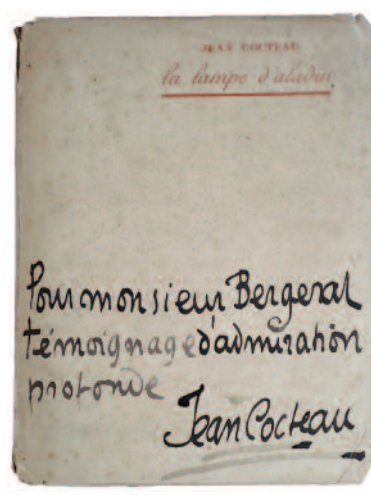 JEAN COCTEAU
la lampe d'aladin
Pour monsieur Bergeral
témoignage d'admiration
profonde
Jean Cocteau